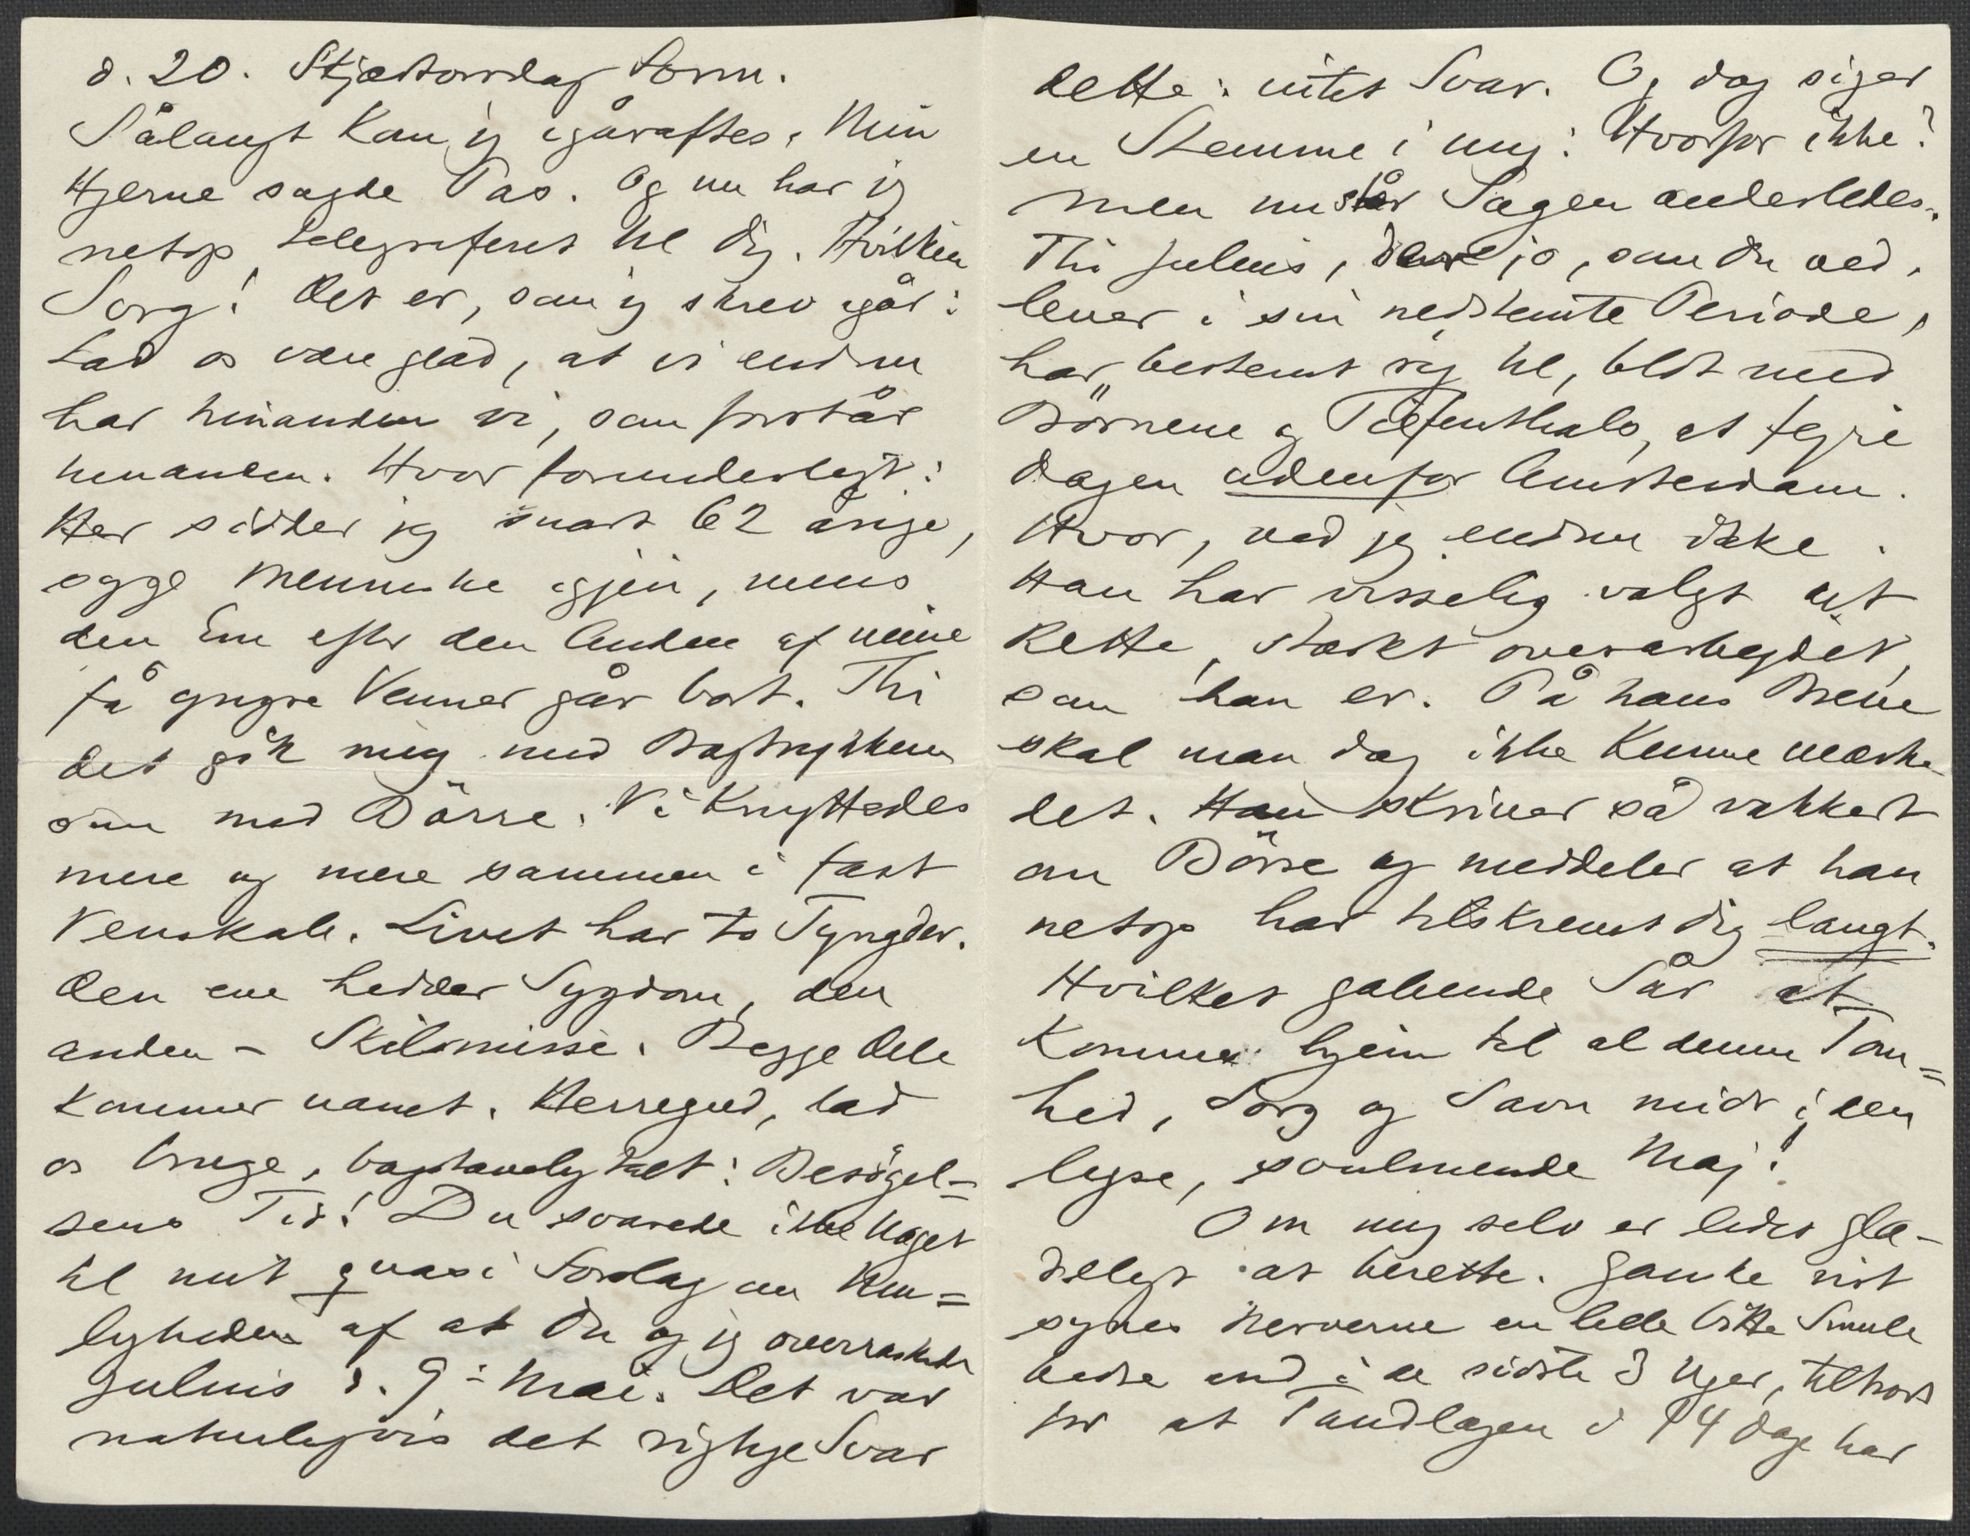 d. 20. Skjærtorsdag Form.
Sålangt kom jeg igåraftes. Min
Hjerne sagde Pas. Og nu har jeg
netop telegraferet til Dig. Hvilken
Sorg! Det er, som jeg skrev igår:
Lad os være glad, at vi endnu
har hinanden vi, som forstår
hinanden. Hvor forunderligt:
Her sidder jeg snart 62 årige,
sygge Menneske igjen, mens
den Ene efter den Anden af mine
få yngre Venner går bort. Thi
det gik mig med
som med Börre. Vi knyttedes
mere og mere sammen i fast
Venskab. Livet har to Tyngder.
Den ene hedder Sygdom, den
anden – Skilsmisse. Begge Dele
kommer uanet. Herregud, lad
os bruge, bogstavelig talt: Besögel=
sens Tid! Du svarede ikke Noget
til mit quasi Forslag om Mu=
ligheden af at Du og jeg overraskede
Julius d. 9de Mai. Det var
naturligvis det rigtige Svar
dette: intet Svar. Og dog siger
en Stemme i mig: Hvorfor ikke?
Men nu står Sagen anderledes.
Thi Julius, der jo, som Du ved,
lever i sin nedstemte Periode,
har bestemt sig til, blot med
Börnene og Tiefenthals, at fejre
Dagen udenfor Amsterdam.
Hvor, ved jeg endnu ikke.
Han har visselig valgt det
Rette, stærkt overarbejdet,
som han er. På hans Breve
skal man dog ikke kunne mærke
det. Han skriver så vakkert
om Börre og meddeler at han
netop har tilskrevet Dig langt.
Hvilket gabende Sår at
komme hjem til al denne Tom=
hed, Sorg og Savn midt i den
lyse, svulmende Maj!
Om mig selv er lidet glæ-
deligt at berette. Ganske vist
synes Nerverne en lille bitte Smule
bedre end i de sidste 3 Uger, tiltrods
for at Tandlægen i 14 Dage har